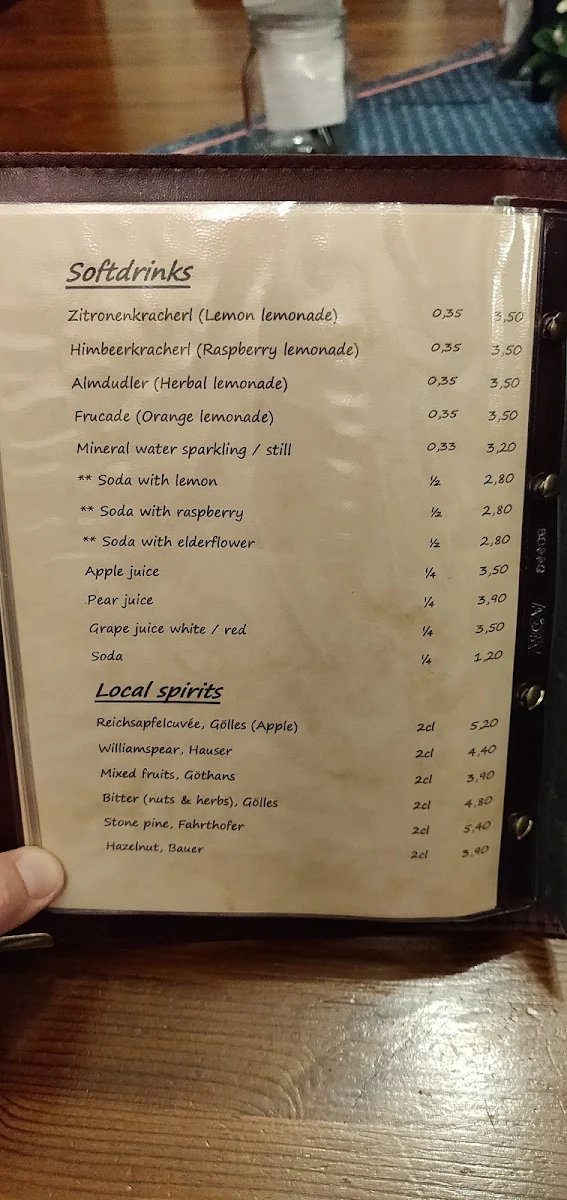 Softdrinks
Zitronenkracherl (Lemon lemonade) 0,35 3,50
Himbeerkracherl (Raspberry lemonade) 0,35 3,50
Almdudler (Herbal lemonade) 0,35 3,50
Frucade (Orange lemonade) 0,35 3,50
Mineral water sparkling / still 0,33 3,20
** Soda with lemon ½ 2,80
** Soda with raspberry ½ 2,80
** Soda with elderflower ½ 2,80
Apple juice ¼ 3,50
Pear juice ¼ 3,90
Grape juice white / red ¼ 3,50
Soda ¼ 1,20
Local spirits
Reichsapfelcuvée, Gölles (Apple) 2cl 5,20
Williamspear, Hauser 2cl 4,40
Mixed fruits, Göthans 2cl 3,90
Bitter (nuts & herbs), Gölles 2cl 4,80
Stone pine, Fahrthofer 2cl 5,40
Hazelnut, Bauer 2cl 3,90